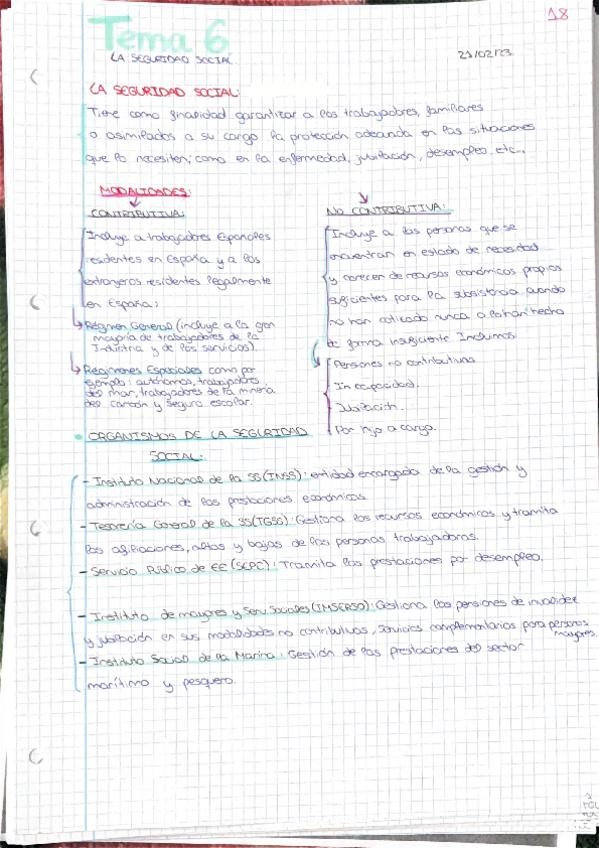 18
Tema 6
LA SEGURIDAD SOCIAL
21/02/23
LA SEGURIDAD SOCIAL:
Tiene como finalidad garantizar a los trabajadores, familiares
o asimilados a su cargo la protección adecuada en las situaciones
que lo necesiten; como en la enfermedad, jubilación, desempleo, etc...
MODALIDADES:
CONTRIBUTIVA:
Incluye a trabajadores Españoles
residentes en España y a los
extranjeros residentes legalmente
en España:
Régimen General (incluye a la gran
mayoría de trabajadores de la
Industria y de los servicios).
Regímenes Especiales como por
ejemplo: autónomos, trabajadores
del mar, trabajadores de la minería
del carbón y seguro escolar.
NO CONTRIBUTIVA:
Incluye a las personas que se
encuentran en estado de necesidad
y carecen de recursos económicos propios
suficientes para la subsistencia cuando
no han cotizado nunca o lo han hecho
de forma insuficiente Incluimos:
Pensiones no contributivas
Incapacidad.
Jubilación.
Por hijo a cargo.
ORGANISMOS DE LA SEGURIDAD
SOCIAL:
- Instituto Nacional de la SS (INSS): entidad encargada de la gestión y
administración de las prestaciones económicas
- Tesorería General de la SS (TGSS): Gestiona los recursos económicos y tramita
las afiliaciones, altas y bajas de las personas trabajadoras.
- Servicio Público de EE (SEPE): Tramita las prestaciones por desempleo.
- Instituto de mayores y Serv. Sociales (IMSERSO): Gestiona las pensiones de invalidez
y jubilación en sus modalidades no contributivas, servicios complementarios para personas
mayores.
- Instituto Social de la Marina: Gestión de las prestaciones del sector
marítimo y pesquero.